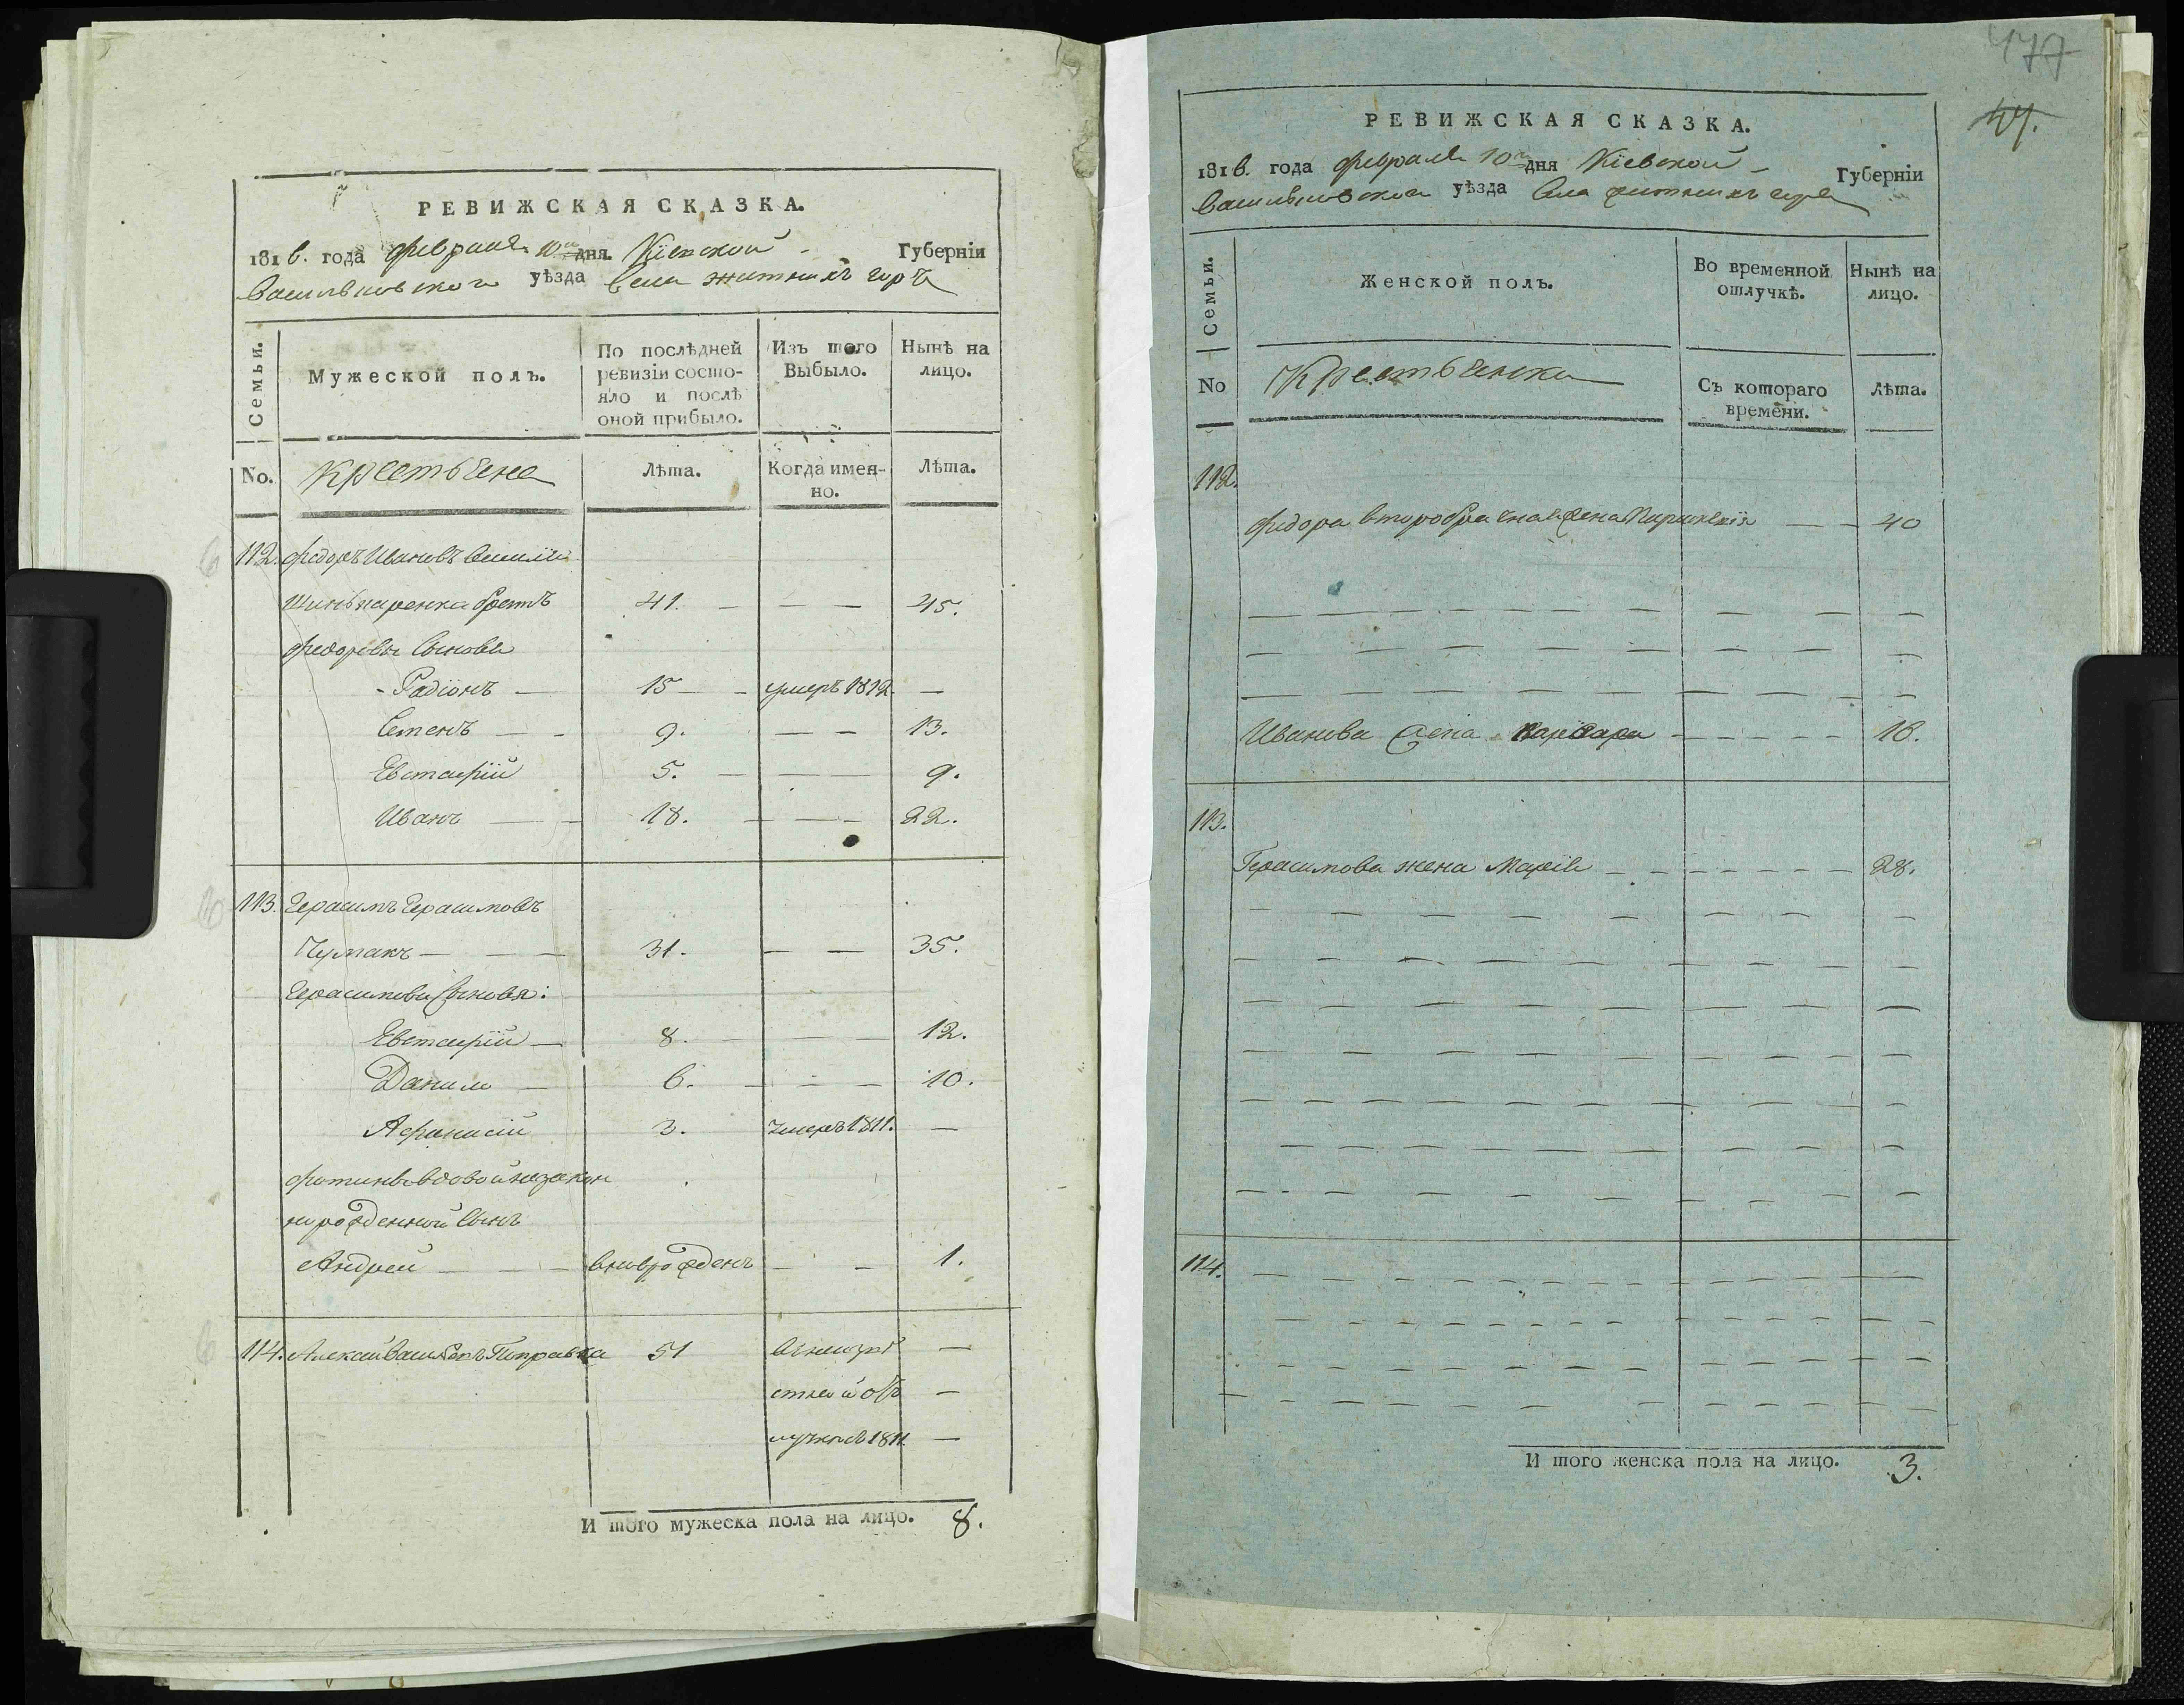 РЕВИЖСКАЯ СКАЗКА.
1816. года февраля 10го дня. Кіевской Губерніи
Васильковского уѣзда Села житникъ горъ
Семьи.
Мужеской полъ.
По послѣдней ревизіи состо-
яло и послѣ
оной прибыло.
Изъ того
Выбыло.
Нынѣ на
лицо.
No.
Крестьяне
Лѣта.
Когда имен-
но.
Лѣта.
112. Федоръ Ивановъ
братъ 41. — — — 45.
Федоровы Сыновья
Радіонъ — 15 — умеръ 1812 —
Семенъ — 9. — — 13.
Евстафій 5. — — 9.
Иванъ — 18. — — 22.
113. Герасимъ Герасимовъ
Чумакъ — — — 31. — — 35.
Герасимовы Сыновья:
Евстафій — 8. — — — 12.
Данило — 6. — — — 10.
Афанасій 3. умеръ 1811. —
Фотины вдовой незакон
норожденной Сынъ
Андрей — — — вновь рожденъ — — 1.
114. Алексей Васильевъ 51 —
стной от —
лучкѣ 1811 —
И того мужеска пола на лицо. 8.
477
47.
РЕВИЖСКАЯ СКАЗКА.
1816. года февраля 10го дня Кіевской Губерніи
Васильковского уѣзда Села житникъ горъ
Семьи.
Женской полъ.
Во временной
отлучкѣ.
Нынѣ на
лицо.
No
Крестьянки
Съ котораго
времени.
Лѣта.
112.
Федора второбрачная жена — — 40
Иванова жена Варвара — — — — — 18.
113.
Герасимова жена Марія — — — — — — — 28.
114.
И того женска пола на лицо. 3.